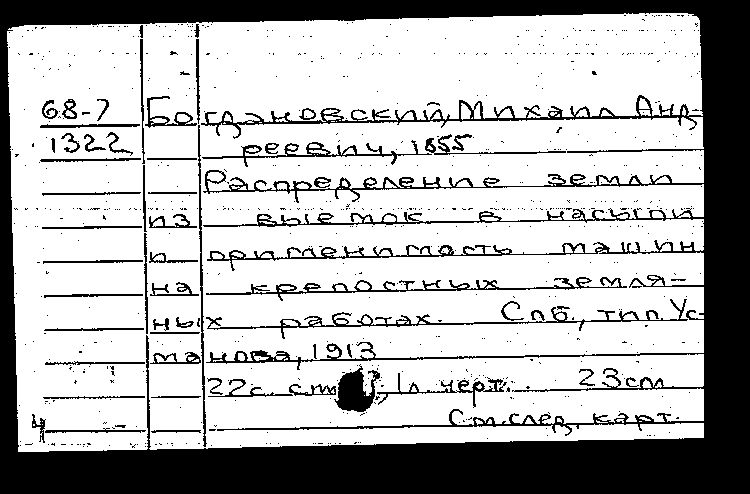 68-7 Богдановский, Михаил Анд-
1322 реевич, 1855
Распределение земли
из выемок в насыпи
и применимость машин
на крепостных земля-
ных работах. Спб., тип. Ус-
манова, 1913
22с. с 1л. черт. 23см.
См. след. карт.
4